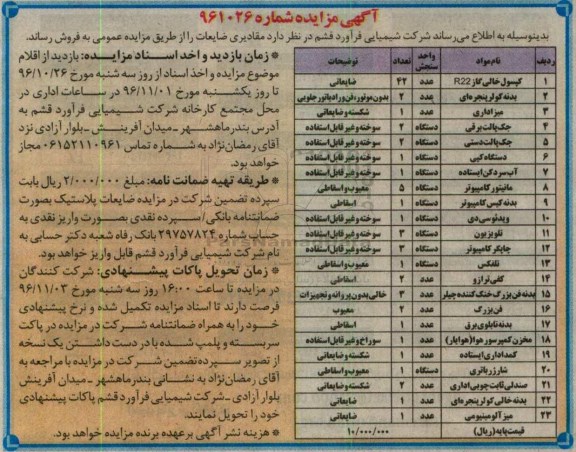 آگهی مزایده شماره ۹۶۱۰۲۶
بدینوسیله به اطلاع می‌رساند شرکت شیمیایی فرآورد قشم در نظر دارد مقادیری ضایعات را از طریق مزایده عمومی به فروش رساند.
* زمان بازدید و اخذ اسناد مزایده: بازدید از اقلام
موضوع مزایده و اخذ اسناد از روز سه شنبه مورخ ۹۶/۱۰/۲۶
تا روز یکشنبه مورخ ۹۶/۱۱/۰۱ در ساعات اداری در
محل مجتمع کارخانه شرکت شیمیایی فرآورد قشم به
آدرس بندرماهشهر ـ میدان آفرینش ـ بلوار آزادی نزد
آقای رمضان‌نژاد به شماره تماس ۰۶۱۵۲۱۱۰۹۶۱ مجاز
خواهد بود.
* طریقه تهیه ضمانت نامه: مبلغ ۲/۰۰۰/۰۰۰ ریال بابت
سپرده تضمین شرکت در مزایده ضایعات پلاستیک بصورت
ضمانتنامه بانکی/سپرده نقدی بصورت واریز نقدی به
حساب شماره ۲۹۷۵۷۸۲۴ بانک رفاه شعبه دکتر حسابی به
نام شرکت شیمیایی فرآورد قشم قابل واریز خواهد بود.
* زمان تحویل پاکات پیشنهادی: شرکت کنندگان
در مزایده تا ساعت ۱۶:۰۰ روز سه شنبه مورخ ۹۶/۱۱/۰۳
فرصت دارند تا اسناد مزایده تکمیل شده و نرخ پیشنهادی
خود را به همراه ضمانتنامه شرکت در مزایده در پاکت
سربسته و پلمپ شده با در دست داشتن یک نسخه
از تصویر سپرده تضمین شرکت در مزایده با مراجعه به
آقای رمضان‌نژاد به نشانی بندرماهشهر ـ میدان آفرینش
بلوار آزادی ـ شرکت شیمیایی فرآورد قشم پاکات پیشنهادی
خود را تحویل نمایند.
* هزینه نشر آگهی برعهده برنده مزایده خواهد بود.
ردیف نام مواد واحد سنجش تعداد توضیحات
۱ کپسول خالی گاز R22 عدد ۴۲ ضایعاتی
۲ بدنه کولر پنجره‌ای عدد ۲ بدون موتور، فن و رادیاتور جلویی
۳ میز اداری عدد ۱ شکسته و ضایعاتی
۴ جک پالت برقی دستگاه ۲ سوخته و غیر قابل استفاده
۵ جک پالت دستی دستگاه ۲ سوخته و غیر قابل استفاده
۶ دستگاه کپی دستگاه ۱ سوخته و غیر قابل استفاده
۷ آب سردکن ایستاده دستگاه ۱ سوخته و غیر قابل استفاده
۸ مانیتور کامپیوتر دستگاه ۵ معیوب و اسقاطی
۹ بدنه کیس کامپیوتر دستگاه ۱ اسقاطی
۱۰ ویدئو سی دی دستگاه ۱ سوخته و غیر قابل استفاده
۱۱ تلویزیون دستگاه ۳ سوخته و غیر قابل استفاده
۱۲ چاپگر کامپیوتر دستگاه ۳ سوخته و غیر قابل استفاده
۱۳ تلفکس دستگاه ۱ معیوب و اسقاطی
۱۴ کفی ترازو عدد ۲ اسقاطی
۱۵ بدنه فن بزرگ خنک کننده چیلر عدد ۳ خالی بدون پروانه و تجهیزات
۱۶ فن بزرگ عدد ۲ معیوب
۱۷ بدنه تابلوی برق عدد ۱ اسقاطی
۱۸ مخزن کمپرسور هوا (هوایار) عدد ۱ سوراخ و غیر قابل استفاده
۱۹ کمد اداری ایستاده عدد ۱ شکسته و ضایعاتی
۲۰ شارژر باتری دستگاه ۱ معیوب و اسقاطی
۲۱ صندلی ثابت چوبی اداری عدد ۲ شکسته و ضایعاتی
۲۲ بدنه خالی کولر پنجره‌ای عدد ۱ ضایعاتی
۲۳ میز آلومینیومی عدد ۱ ضایعاتی
قیمت پایه (ریال) ۱۰/۰۰۰/۰۰۰